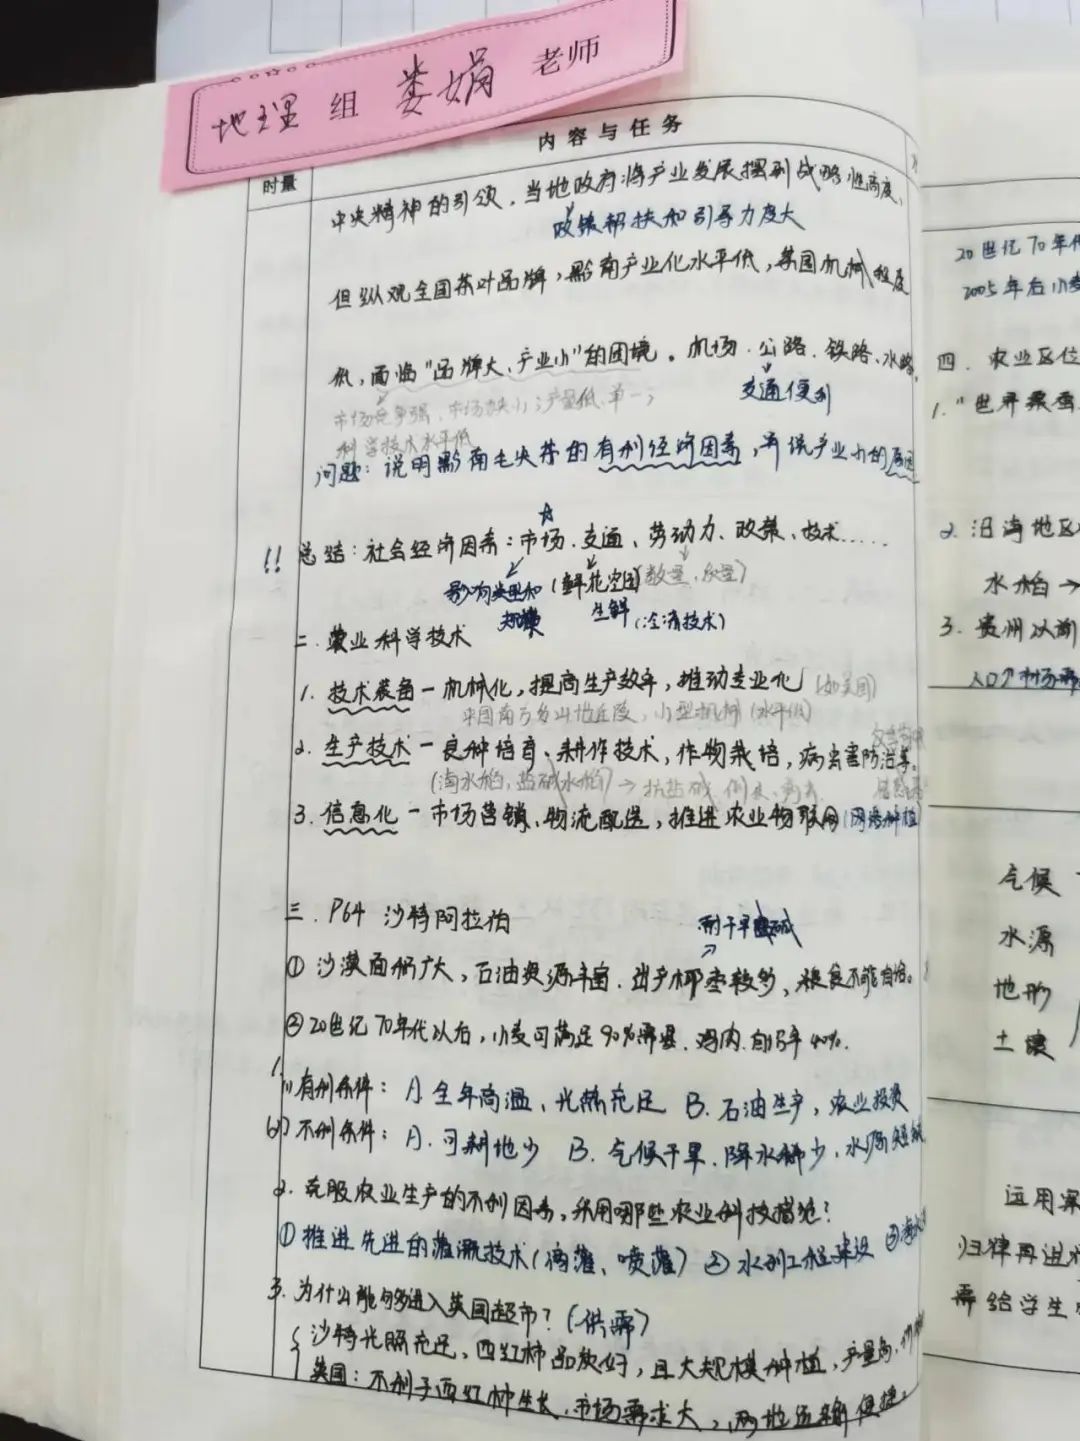 地理 组 娄娟 老师
内容与任务
时量
中央精神的引领,当地政府将产业发展摆到战略性高度,
政策帮扶和引导力度大
但纵观全国茶叶品牌,黔南产业化水平低,茶园机械程度
低,面临"品牌大、产业小"的困境。机场、公路、铁路、水路,
交通便利
市场竞争强,市场缺小;产量低、单一;
科学技术水平低
问题:说明黔南毛尖茶的有利经济因素,并说产业小的原因
!! 总结:社会经济因素:市场、交通、劳动力、政策、技术……
影响类型和规模
(鲜花空运)
(数量、质量)
生鲜(冷冻技术)
二.农业科学技术
1. 技术装备—机械化,提高生产效率,推动专业化(如美国)
中国南方多山地丘陵,小型机械(水平低)
2. 生产技术—良种培育、耕作技术,作物栽培,病虫害防治等。
(海水稻,盐碱水稻)→抗盐碱、倒伏、病虫
3. 信息化—市场营销、物流配送,推进农业物联网(网络种植)
三. P64 沙特阿拉伯
耐干旱盐碱
① 沙漠面积广大,石油资源丰富.出产椰枣较多,粮食不能自给。
②20世纪70年代以后,小麦可满足90%需要.鸡肉.自给率40%.
1.
(1)有利条件:A.全年高温、光热充足 B.石油生产,农业投资
(2)不利条件:A.可耕地少 B.气候干旱.降水稀少,水源短缺
2. 克服农业生产的不利因素,采用哪些农业科技措施?
①推进先进的灌溉技术(滴灌、喷灌) ②水利工程建设 ③海水
3. 为什么能够进入英国超市?(供需)
沙特光照充足,西红柿品质好,且大规模种植,产量高,
英国:不利于西红柿生长,市场需求大,两地运输便捷。
20世纪70年代
2005年后小麦
四. 农业区位
1."世界
2. 沿海地区
水稻→
3. 贵州以前
人口↑市场需
气候
水源
地形
土壤
运用案
归律再进
再给学生